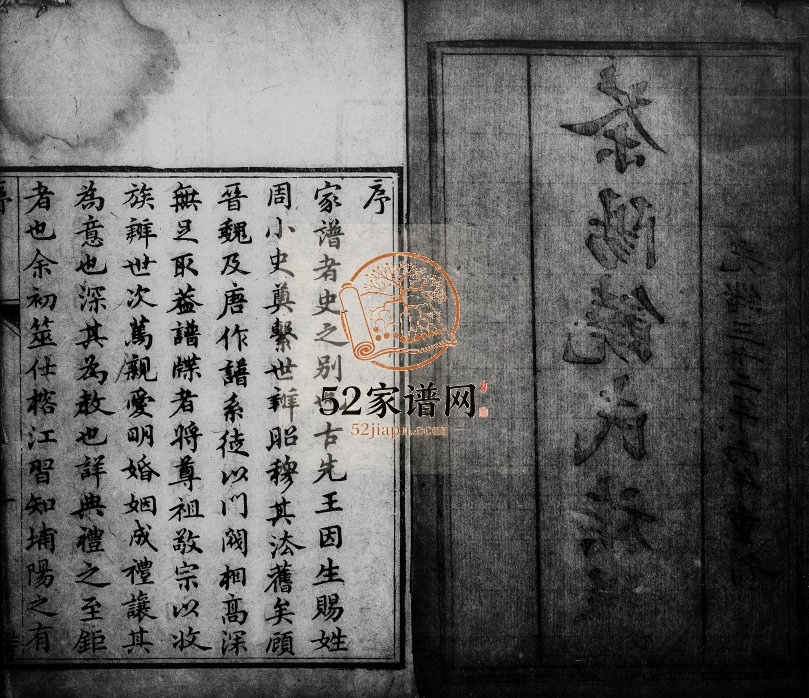 茶陽饒氏族
序
家譜者史之別
古先王因生賜姓
周小史奠繫世辨昭穆其法舊矣顧
晉魏及唐作譜系徒以門閥相高深
無足取葢譜牒者將尊祖敬宗以收
族辨世次篤親愛明婚姻成禮讓其
為意也深其為教也詳典禮之至鉅
者也余初筮仕榕江習知埔陽之有
序
52家谱网
52jiapu.com